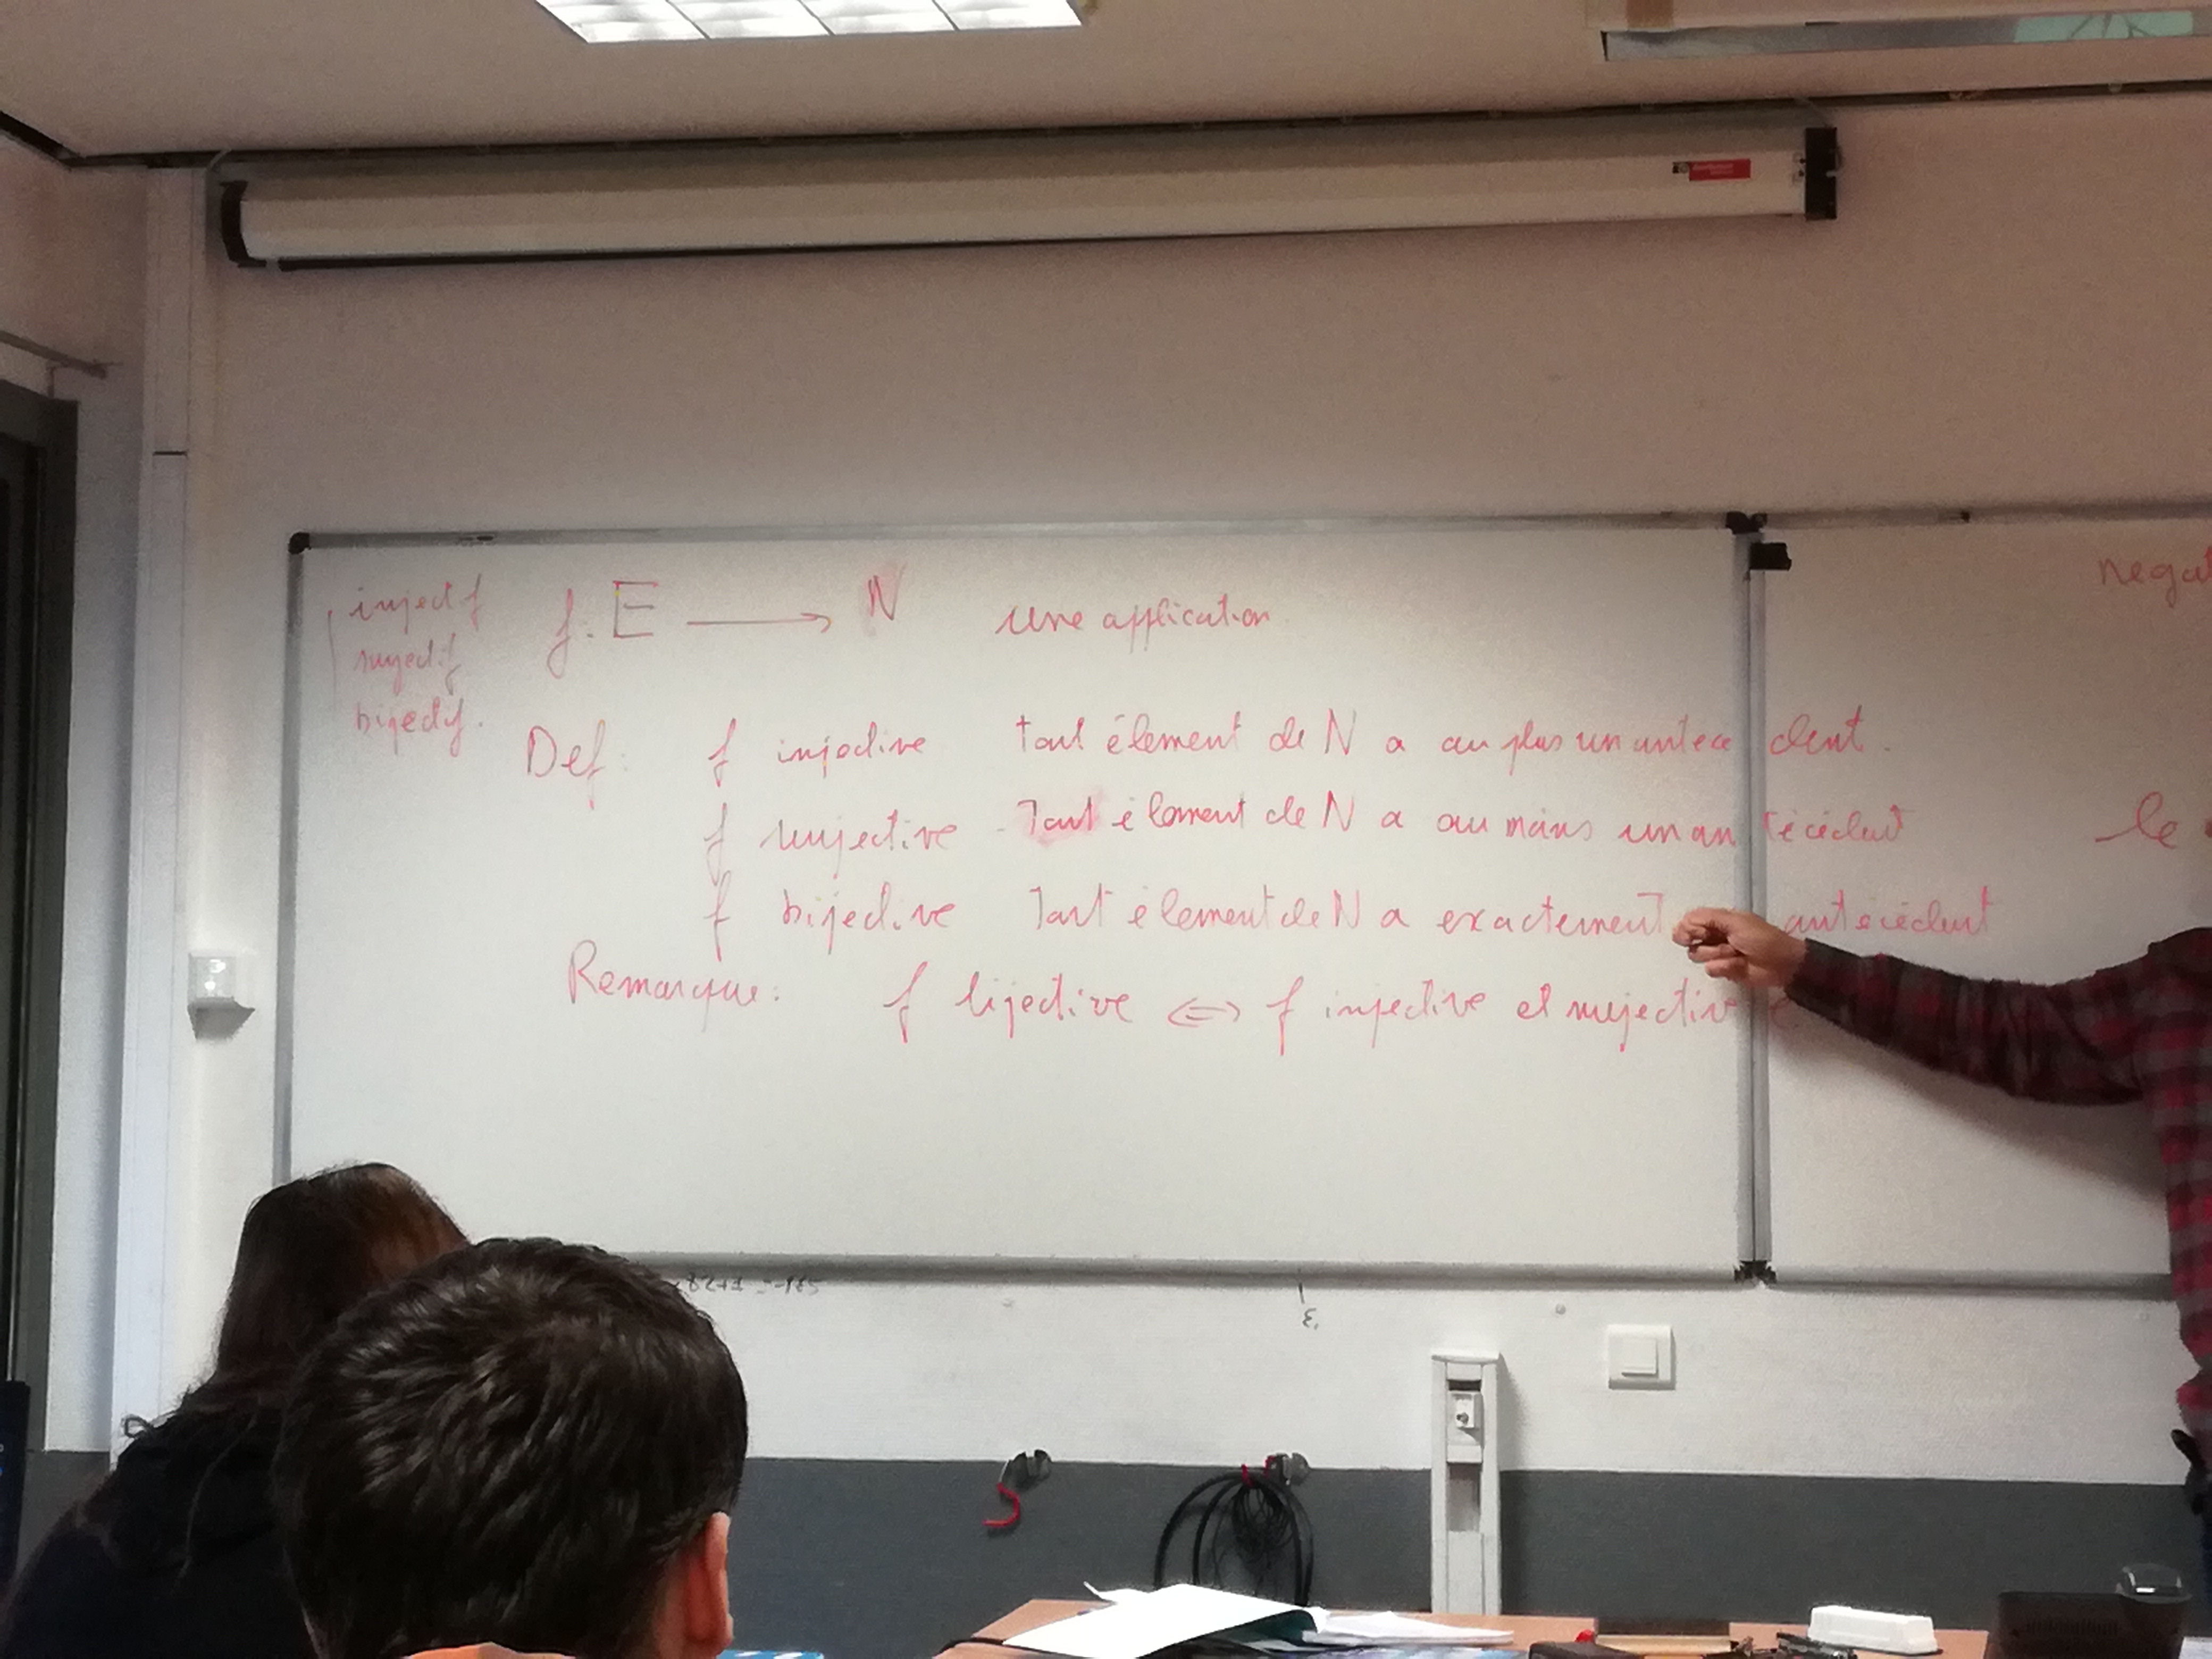 injectif
surjectif
bijectif.
f: E ⟶ N une application
Def: f injective tout élément de N a au plus un antecedent.
f surjective - Tout élément de N a au moins un antécédent
f bijective Tout élément de N a exactement antécédent
Remarque: f bijective ⟺ f injective et surjective
negat
le